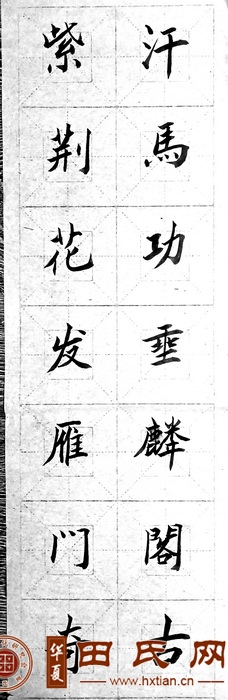 汗馬功垂麟閣古
紫荆花发雁门有
华夏
田氏网
www.hxtian.cn